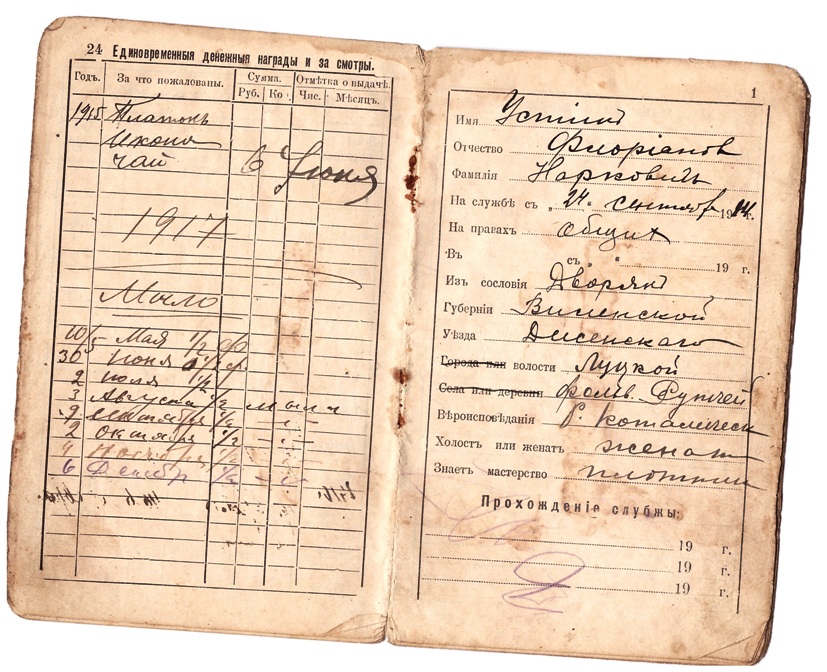 24 Единовременныя денежныя награды и за смотры.
Годъ. За что пожалованы. Сумма. Отмѣтка о выдачѣ.
Руб. Ко Чис. Мѣсяцъ.
1915 Платокъ
Икона
Чай 6 Июня
1917
Мыло
10/5 Мая 1/2 ф
30 Июня 1/2 ф
2 Июля 1/2
3 Августа 1/2 мыла
2 Октября 1/2
4 Ноября 1/2
6 Декабр 1/2
1
Имя Устинъ
Отчество Флоріанов
Фамилія Нарковичъ
На службѣ съ „24“ сентябр 1914 г.
На правахъ общихъ
Въ съ „ “ 19 г.
Изъ сословія Дворянъ
Губерніи Виленской
Уѣзда Дисенскаго
Города или волости Луцкой
Села или деревни фольв.
Вѣроисповѣданія Р. Католическ
Холостъ или женатъ женат
Знаетъ мастерство плотник
Прохожденіе службы:
19 г.
19 г.
19 г.